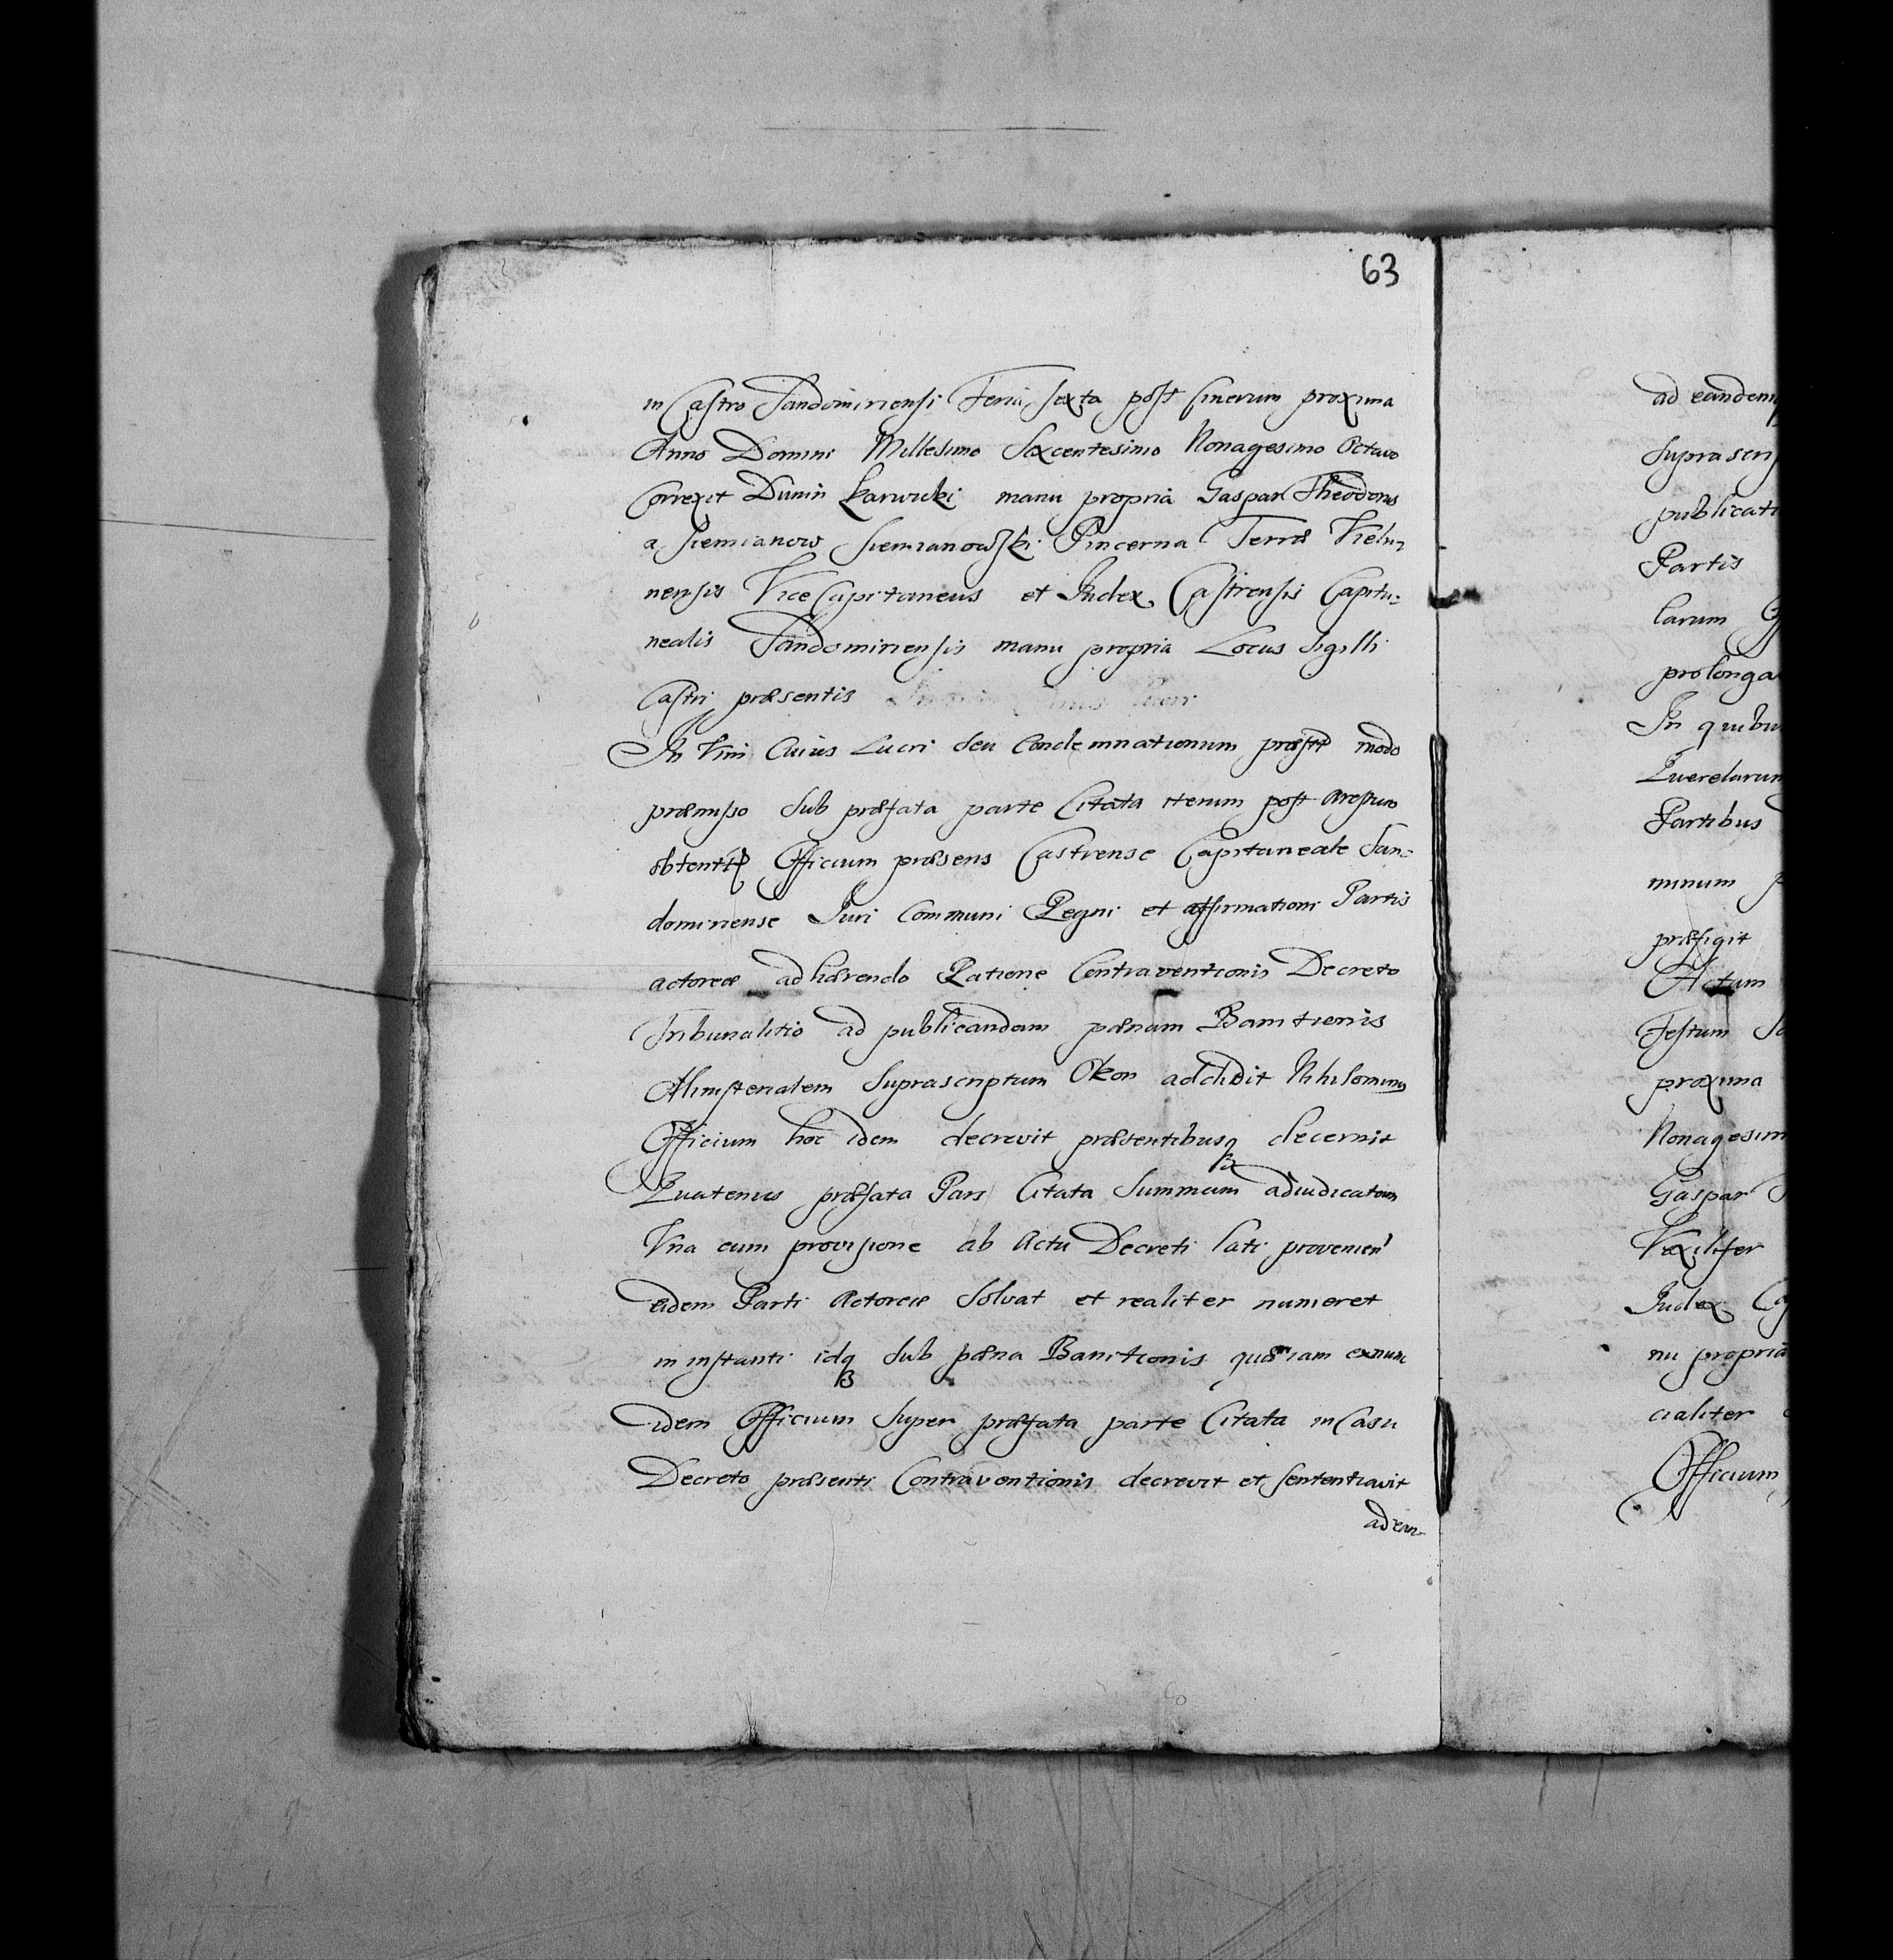 63
in Castro Sandomiriensi Feria sexta post Cinerum proxima
Anno Domini Millesimo Sexcentesimo Nonagesimo Octavo
Correxit Dunin Karwicki manu propria Gaspar Theodorus
a Siemianow Siemianowski Pincerna Terræ Vielu-
nensis ViceCapitaneus et Iudex Castrensis Capita-
nealis Sandomiriensis manu propria Locus Sigilli
Castri præsentis
In Vim Cuius Lucri seu Condemnationum modo
præmisso Sub præfata parte Citata iterum post
Officium præsens Castrense Capitaneale San-
domiriense Iuri Communi Regni et affirmationi Partis
actoreæ adhærendo Ratione Contraventionis Decreto
Tribunalitio ad publicandam pænam Banitionis
Ministerialem Suprascriptum Okon addidit Nihilominus
Officium hoc idem decrevit præsentibusq decernit
Quatenus præfata Pars Citata Summam adiudicatam
Vna cum provisione ab Actu Decreti lati provenien
eidem Parti Actoreæ Solvat et realiter numeret
in instanti idq Sub pæna Banitionis quam iam exnunc
idem Officium Super præfata parte Citata in Casu
Decreto præsenti Contraventionis decrevit et sententiavit
ad ean-
ad eandem
publicati
Partis
larum
prolonga
In quibu
Querelarum
Partibus
minum
præfigit
Actum
Festum
proxima
Nonagesim
Gaspar
Vexilifer
Iudex
nu propria
cialiter
Officium